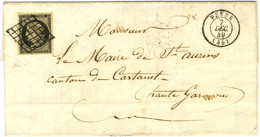 Monsieur
Le Maire de St aurins
canton de Castanet
haute Garonne
DEC
49